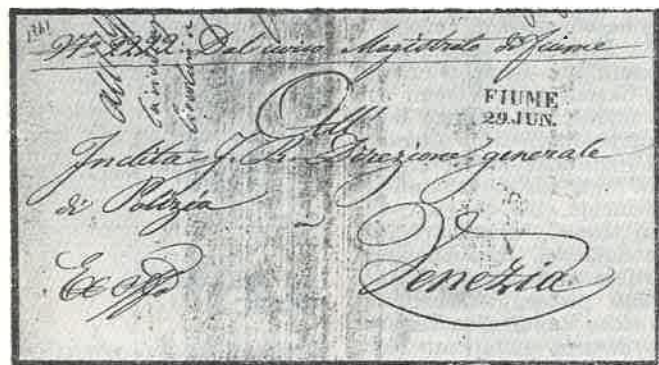 Nº 2222. Dal civico Magistrato di Fiume
FIUME
29.JUN.
All'
Inclita I. R. Direzione generale
di Polizia
Venezia
Ex offo